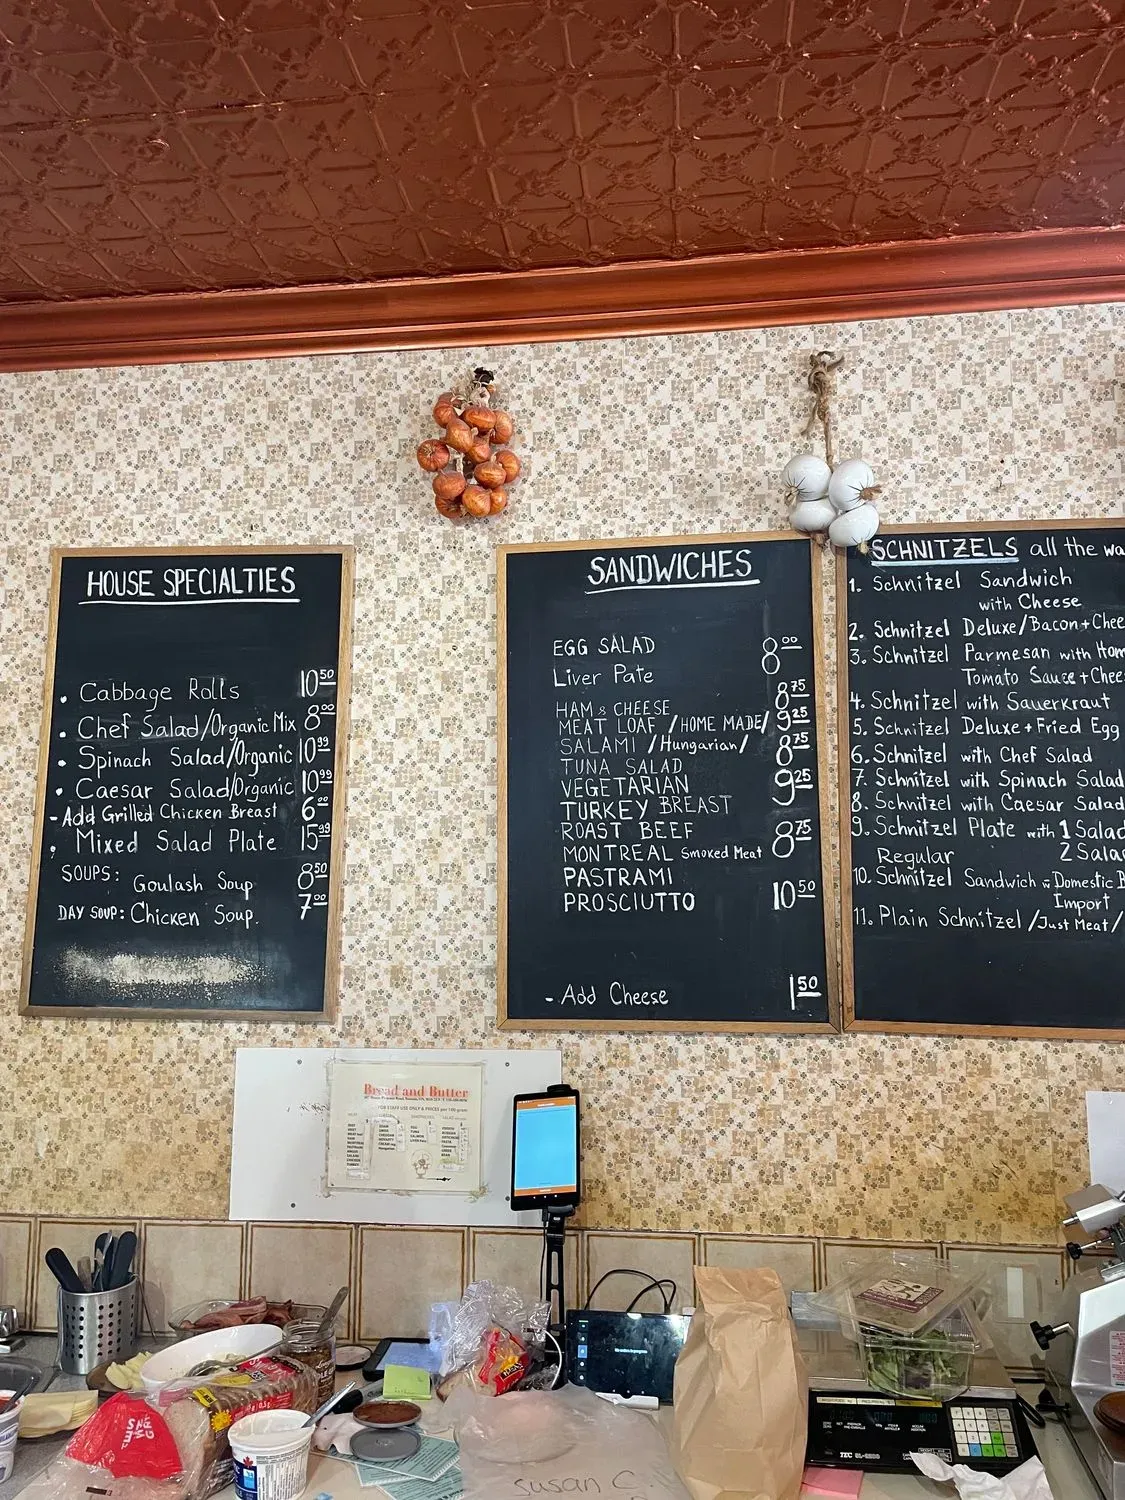 HOUSE SPECIALTIES
. Cabbage Rolls 10 50
. Chef Salad/Organic Mix 8 00
. Spinach Salad/Organic 10 99
. Caesar Salad/Organic 10 99
- Add Grilled Chicken Breast 6 00
. Mixed Salad Plate 15 99
SOUPS: Goulash Soup 8 50
DAY SOUP: Chicken Soup. 7 00
SANDWICHES
EGG SALAD 8 00
Liver Pate
HAM & CHEESE 8 75
MEAT LOAF /HOME MADE/ 9 25
SALAMI /Hungarian/ 8 75
TUNA SALAD
VEGETARIAN 9 25
TURKEY BREAST
ROAST BEEF 8 75
MONTREAL Smoked Meat
PASTRAMI
PROSCIUTTO 10 50
- Add Cheese 1 50
SCHNITZELS all the wa
1. Schnitzel Sandwich
with Cheese
2. Schnitzel Deluxe/Bacon+Chee
3. Schnitzel Parmesan with Hom
Tomato Sauce+Chee
4. Schnitzel with Sauerkraut
5. Schnitzel Deluxe+Fried Egg
6. Schnitzel with Chef Salad
7. Schnitzel with Spinach Salad
8. Schnitzel with Caesar Salad
9. Schnitzel Plate with 1 Salad
Regular 2 Salad
10. Schnitzel Sandwich w Domestic B
Import
11. Plain Schnitzel /Just Meat/
Bread and Butter
FOR STAFF USE ONLY & PRICES per 100 gram
TEC
Susan C.